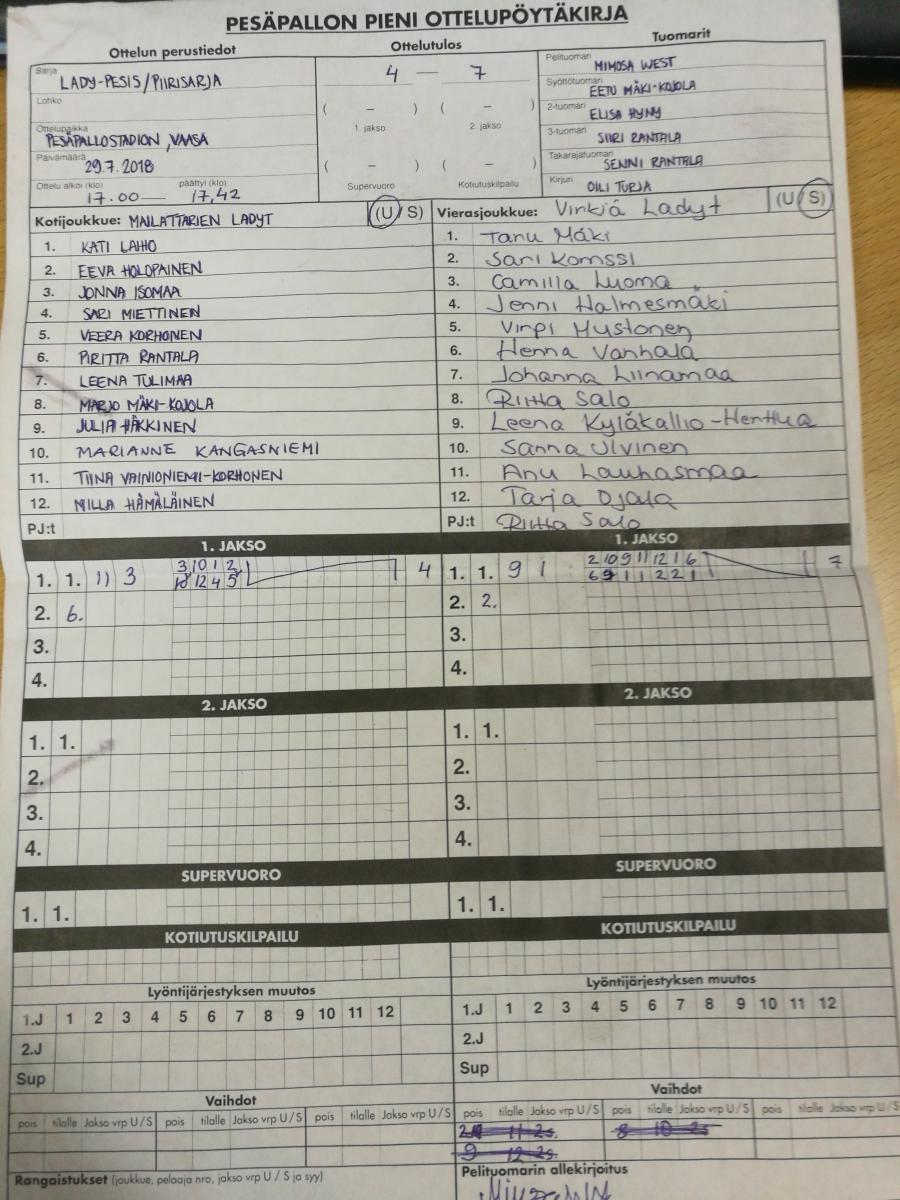 PESÄPALLON PIENI OTTELUPÖYTÄKIRJA
Ottelun perustiedot
Sarja
LADY-PESIS/PIIRISARJA
Lohko
Ottelupaikka
PESÄPALLOSTADION, VAASA
Päivämäärä
29.7.2018
Ottelu alkoi (klo) päättyi (klo)
17.00 — 17,42
Ottelutulos
4 — 7
( – ) ( – )
1. jakso 2. jakso
( – ) ( – )
Supervuoro Kotiutuskilpailu
Tuomarit
Pelituomari
MIMOSA WEST
Syöttötuomari
EETU MÄKI-KOJOLA
2-tuomari
ELISA HYNY
3-tuomari
SIIRI RANTALA
Takarajatuomari
SENNI RANTALA
Kirjuri
OILI TURJA
Kotijoukkue: MAILATTARIEN LADYT (U/S)
1. KATI LAIHO
2. EEVA HOLOPAINEN
3. JONNA ISOMAA
4. SARI MIETTINEN
5. VEERA KORHONEN
6. PIRITTA RANTALA
7. LEENA TULIMAA
8. MARJO MÄKI-KOJOLA
9. JULIA HÄKKINEN
10. MARIANNE KANGASNIEMI
11. TIINA VAINIONIEMI-KORHONEN
12. MILLA HÄMÄLÄINEN
PJ:t
Vierasjoukkue: Virkiä Ladyt (U/S)
1. Tanu Mäki
2. Sari Komssi
3. Camilla Luoma
4. Jenni Halmesmäki
5. Virpi Mustonen
6. Henna Vanhala
7. Johanna Liinamaa
8. Riitta Salo
9. Leena Kyläkallio-Henttua
10. Sanna Ulvinen
11. Anu Lauhasmaa
12. Tarja Ojala
PJ:t Riitta Salo
1. JAKSO
1. 1. 11 3 3 10 1 2 4
12 4 5
2. 6.
3.
4.
1. JAKSO
1. 1. 9 1 2 10 9 11 12 1 6 7
6 9 1 1 2 2 1
2. 2.
3.
4.
2. JAKSO
1. 1.
2.
3.
4.
2. JAKSO
1. 1.
2.
3.
4.
SUPERVUORO
1. 1.
SUPERVUORO
1. 1.
KOTIUTUSKILPAILU
KOTIUTUSKILPAILU
Lyöntijärjestyksen muutos
1.J 1 2 3 4 5 6 7 8 9 10 11 12
2.J
Sup
Lyöntijärjestyksen muutos
1.J 1 2 3 4 5 6 7 8 9 10 11 12
2.J
Sup
Vaihdot
pois tilalle Jakso vrp U/S pois tilalle Jakso vrp U/S pois tilalle Jakso vrp U/S
Vaihdot
pois tilalle Jakso vrp U/S pois tilalle Jakso vrp U/S pois tilalle Jakso vrp U/S
11 2s. 8 10 2s
9 12 2s.
Rangaistukset (joukkue, pelaaja nro, jakso vrp U/S ja syy)
Pelituomarin allekirjoitus